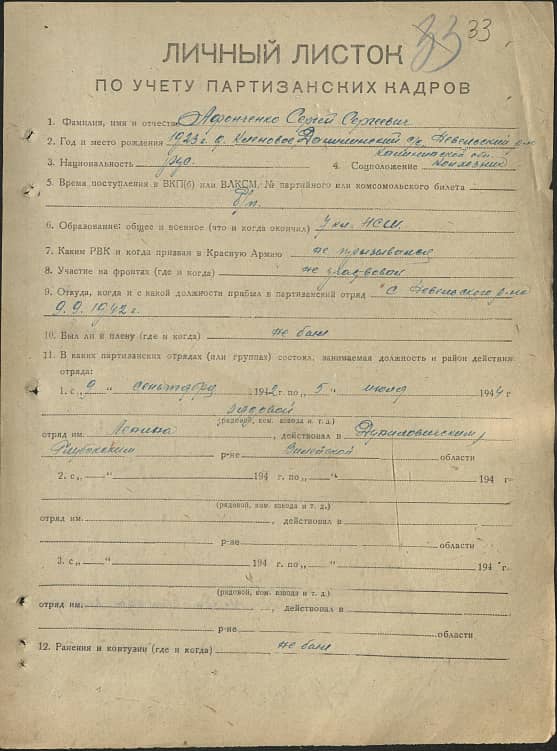 33 33
ЛИЧНЫЙ ЛИСТОК
ПО УЧЕТУ ПАРТИЗАНСКИХ КАДРОВ
1. Фамилия, имя и отчество Афонченко Сергей Сергеевич
2. Год и место рождения 1923 г. д. Кленовое, Невельский р-он
Калининской обл.
3. Национальность рус. 4. Соцположение колхозник
5. Время поступления в ВКП(б) или ВЛКСМ, № партийного или комсомольского билета
б/п.
6. Образование: общее и военное (что и когда окончил) 7 кл. НСШ.
7. Каким РВК и когда призван в Красную Армию не призывался
8. Участие на фронтах (где и когда) не участвовал
9. Откуда, когда и с какой должности прибыл в партизанский отряд С Невельского р-на
9.9.1942 г.
10. Был ли в плену (где и когда) не был
11. В каких партизанских отрядах (или группах) состоял, занимаемая должность и район действия
отряда:
1. с „ 9 “ сентября 1942 г. по „ 5 “ июля 1944 г
рядовой
(рядовой, ком. взвода и т. д.)
отряд им. Ленина, действовал в Дуниловичским,
Глубокским р-не Вилейской области
2. с „ “ 194 г. по „ “ 194 г
(рядовой, ком. взвода и т. д.)
отряд им. , действовал в
р-не области
3. с „ “ 194 г. по „ “ 194 г
(рядовой, ком. взвода и т. д.)
отряд им. , действовал в
р-не области
12. Ранения и контузии (где и когда) не был